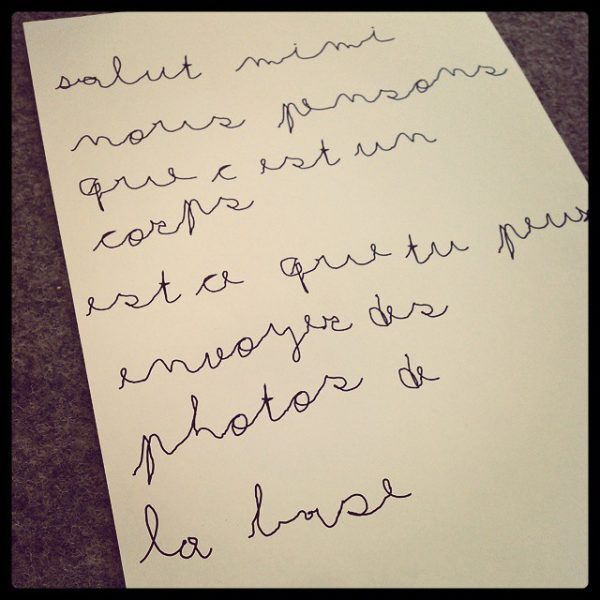 salut mimi
nous pensons
que c est un
corps
est ce que tu peux
envoyer des
photos de
la base